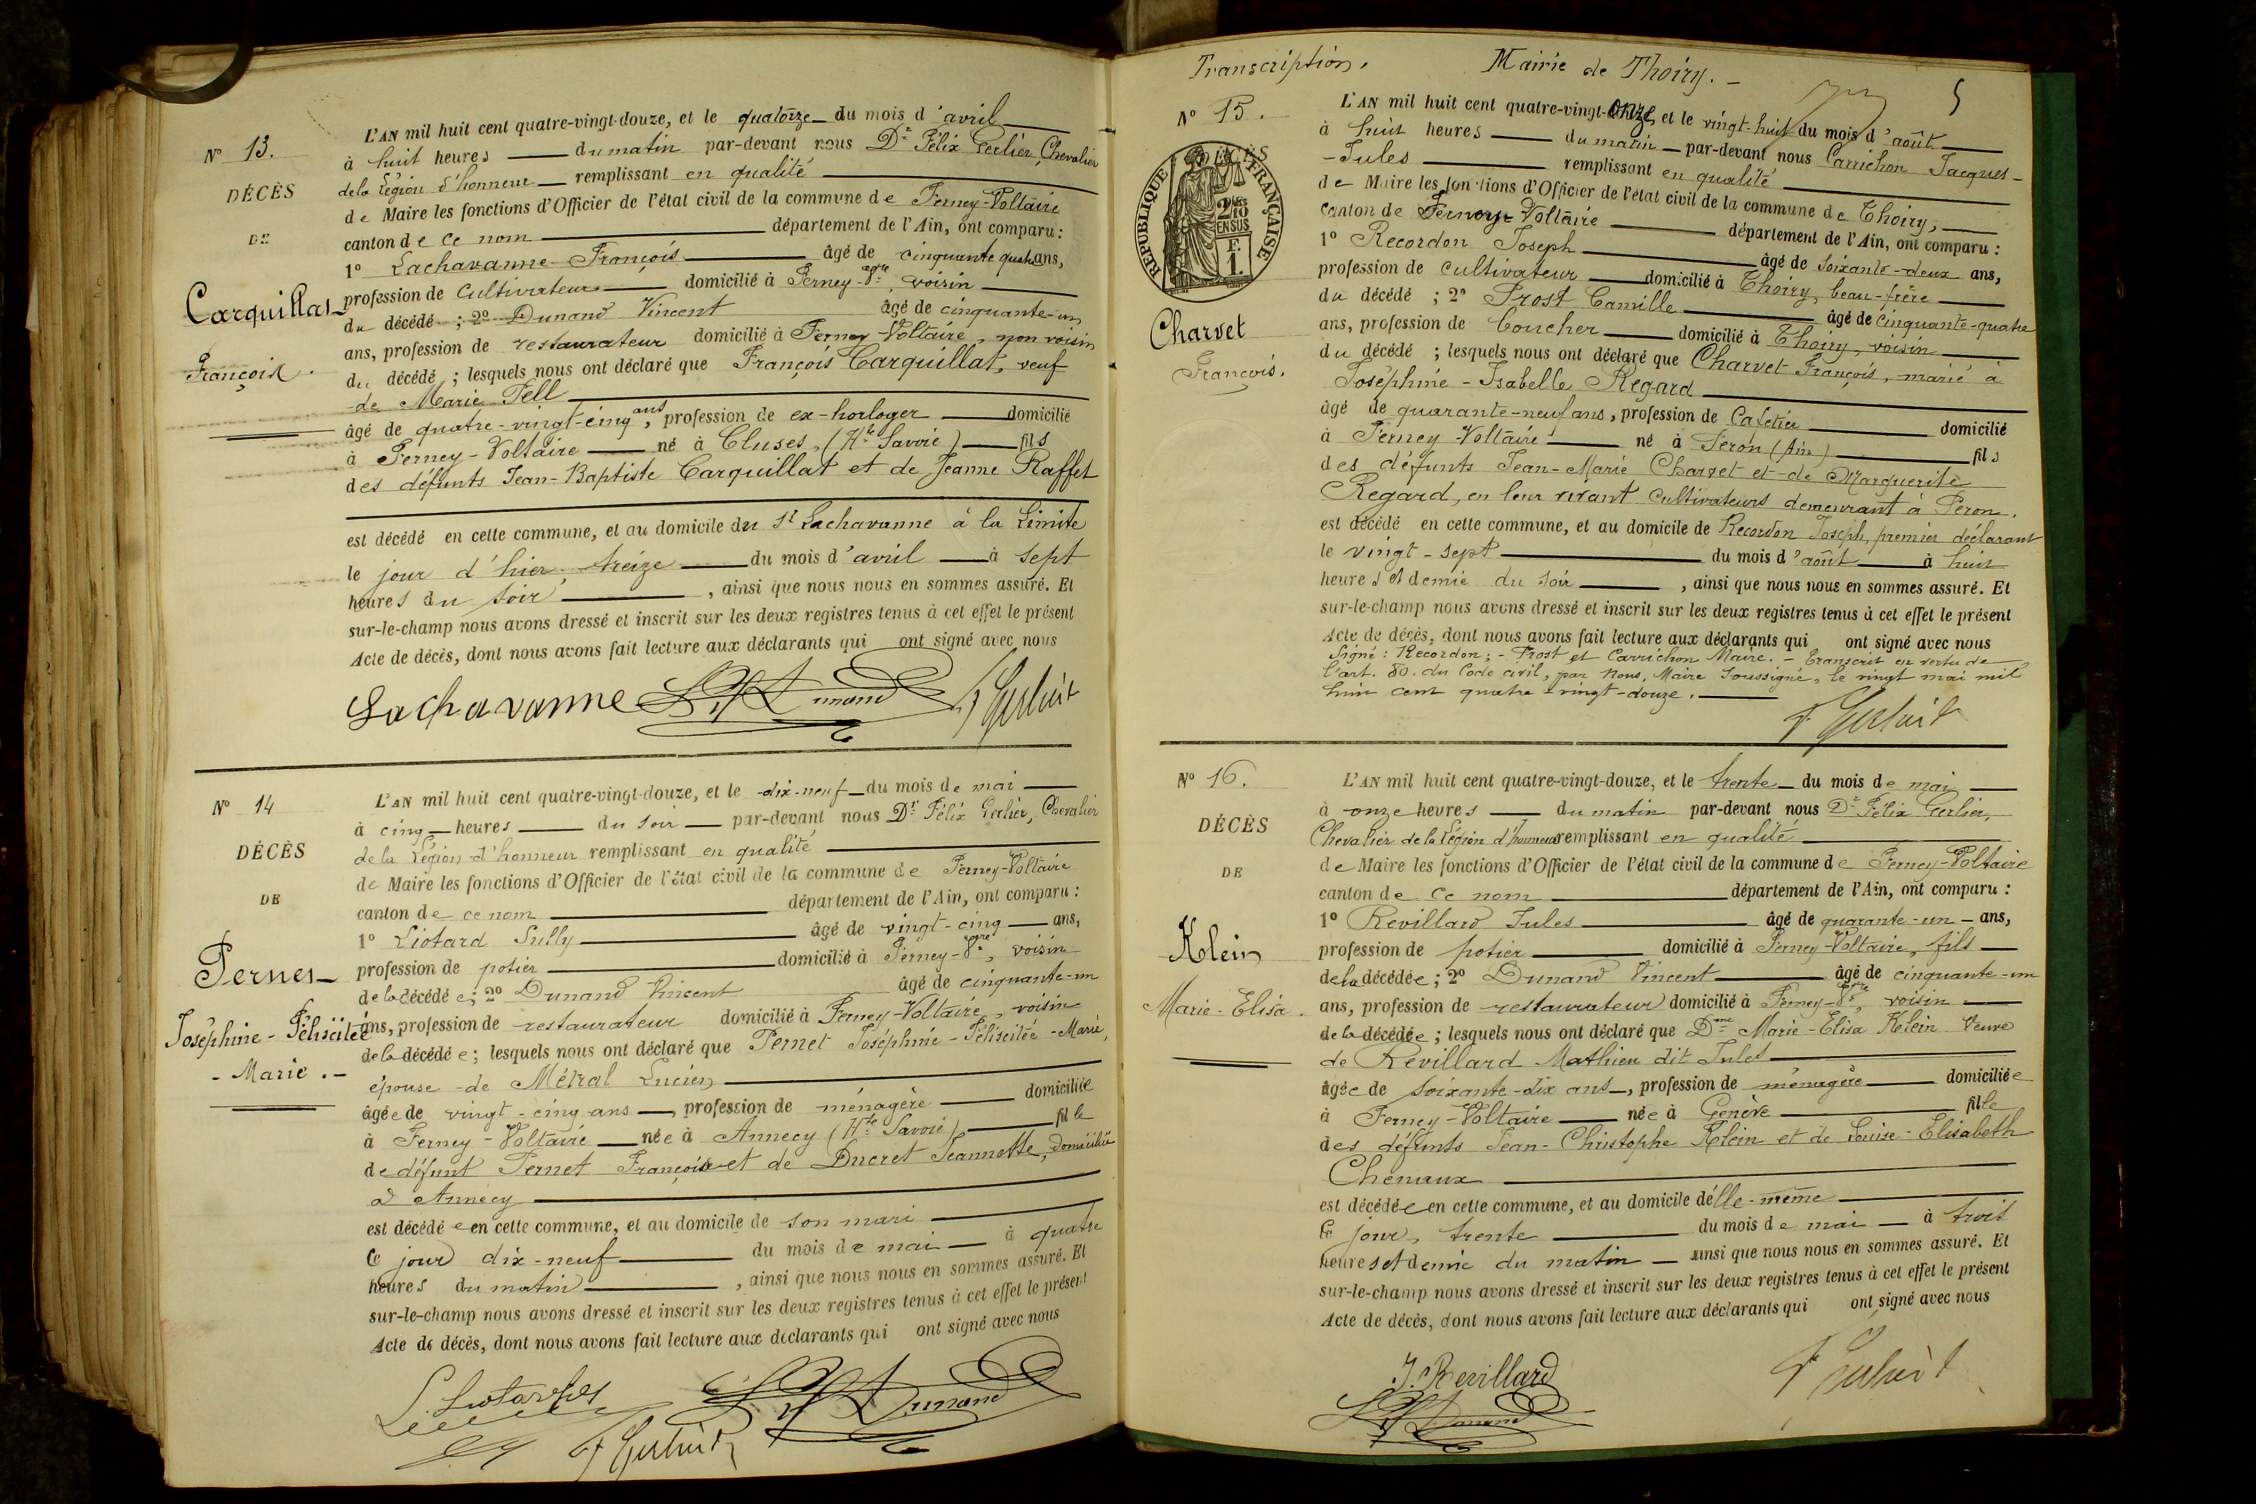 Nº 13.
DÉCÈS
DE
Carquillat
François.
L'AN mil huit cent quatre-vingt-douze, et le quatorze du mois d'avril
à huit heures du matin par-devant nous Dr Félix Gerlier, Chevalier
de la Légion d'honneur remplissant en qualité
de Maire les fonctions d'Officier de l'état civil de la commune de Ferney-Voltaire
canton de ce nom département de l'Ain, ont comparu :
1º Lachavanne François âgé de cinquante quatre ans,
profession de cultivateur domicilié à Ferney-Vre, voisin
du décédé ; 2º Dunand Vincent âgé de cinquante-un
ans, profession de restaurateur domicilié à Ferney Voltaire, non voisin
du décédé ; lesquels nous ont déclaré que François Carquillat, veuf
de Marie Tell
âgé de quatre-vingt-cinq ans, profession de ex-horloger domicilié
à Ferney-Voltaire né à Cluses, (Hte Savoie) fils
des défunts Jean-Baptiste Carquillat et de Jeanne Raffet
est décédé en cette commune, et au domicile du Sr Lachavanne à la Limite
le jour d'hier, treize du mois d'avril à sept
heures du soir , ainsi que nous nous en sommes assuré. Et
sur-le-champ nous avons dressé et inscrit sur les deux registres tenus à cet effet le présent
Acte de décès, dont nous avons fait lecture aux déclarants qui ont signé avec nous
Lachavanne Dunand F Gerlier
Nº 14
DÉCÈS
DE
Pernet
Joséphine-Félicitée
-Marie.-
L'AN mil huit cent quatre-vingt-douze, et le dix-neuf du mois de mai
à cinq heures du soir par-devant nous Dr Félix Gerlier, Chevalier
de la Légion d'honneur remplissant en qualité
de Maire les fonctions d'Officier de l'état civil de la commune de Ferney-Voltaire
canton de ce nom département de l'Ain, ont comparu :
1º Liotard Sully âgé de vingt-cinq ans,
profession de potier domicilié à Ferney-Vre, voisin
de la décédée ; 2º Dunand Vincent âgé de cinquante-un
ans, profession de restaurateur domicilié à Ferney-Voltaire, voisin
de la décédée ; lesquels nous ont déclaré que Pernet Joséphine-Félicitée-Marie,
épouse de Métral Lucien
âgée de vingt-cinq ans, profession de ménagère domiciliée
à Ferney-Voltaire née à Annecy (Hte Savoie) fille
de défunt Pernet François et de Ducret Jeannette, domiciliée
à Annecy
est décédée en cette commune, et au domicile de son mari
ce jour dix-neuf du mois de mai à quatre
heures du matin , ainsi que nous nous en sommes assuré. Et
sur-le-champ nous avons dressé et inscrit sur les deux registres tenus à cet effet le présent
Acte de décès, dont nous avons fait lecture aux déclarants qui ont signé avec nous
Dunand
F Gerlier
Transcription. Mairie de Thoiry.
5
Nº 15.
DÉCÈS
RÉPUBLIQUE FRANÇAISE
2/10 EN SUS
F. 1.
Charvet
François.
L'AN mil huit cent quatre-vingt-onze, et le vingt-huit du mois d'août
à huit heures du matin par-devant nous Carrichon Jacques-
-Jules remplissant en qualité
de Maire les fonctions d'Officier de l'état civil de la commune de Thoiry,
canton de Ferney-Voltaire département de l'Ain, ont comparu :
1º Recordon Joseph âgé de soixante-deux ans,
profession de cultivateur domicilié à Thoiry, beau-frère
du décédé ; 2º Prost Camille âgé de cinquante-quatre
ans, profession de boucher domicilié à Thoiry, voisin
du décédé ; lesquels nous ont déclaré que Charvet François, marié à
Joséphine-Isabelle Regard
âgé de quarante-neuf ans, profession de Cafetier domicilié
à Ferney-Voltaire né à Peron (Ain) fils
des défunts Jean-Marie Charvet et de Marguerite
Regard, en leur vivant cultivateurs demeurant à Peron.
est décédé en cette commune, et au domicile de Recordon Joseph, premier déclarant
le vingt-sept du mois d'août à huit
heures et demie du soir , ainsi que nous nous en sommes assuré. Et
sur-le-champ nous avons dressé et inscrit sur les deux registres tenus à cet effet le présent
Acte de décès, dont nous avons fait lecture aux déclarants qui ont signé avec nous
Signé : Recordon ; - Prost et Carrichon Maire. - Transcrit en vertu de
l'art. 80. du Code civil, par Nous, Maire Soussigné, le vingt mai mil
huit cent quatre vingt-douze.
F. Gerlier
Nº 16.
DÉCÈS
DE
Klein
Marie-Elisa.
L'AN mil huit cent quatre-vingt-douze, et le trente du mois de mai
à onze heures du matin par-devant nous Dr Félix Gerlier,
Chevalier de la Légion d'honneur remplissant en qualité
de Maire les fonctions d'Officier de l'état civil de la commune de Ferney-Voltaire
canton de ce nom département de l'Ain, ont comparu :
1º Revillard Jules âgé de quarante-un ans,
profession de potier domicilié à Ferney-Voltaire, fils
de la décédée ; 2º Dunand Vincent âgé de cinquante-un
ans, profession de restaurateur domicilié à Ferney-Vre, voisin
de la décédée ; lesquels nous ont déclaré que Dme Marie-Elisa Klein Veuve
de Révillard Mathieu dit Jules
âgée de soixante-dix ans, profession de ménagère domiciliée
à Ferney-Voltaire née à Genève fille
des défunts Jean-Christophe Klein et de Louise-Elisabeth
Chenaux
est décédée en cette commune, et au domicile d'elle-même
ce jour, trente du mois de mai à trois
heures et demie du matin ainsi que nous nous en sommes assuré. Et
sur-le-champ nous avons dressé et inscrit sur les deux registres tenus à cet effet le présent
Acte de décès, dont nous avons fait lecture aux déclarants qui ont signé avec nous
J. Revillard F Gerlier
Dunand